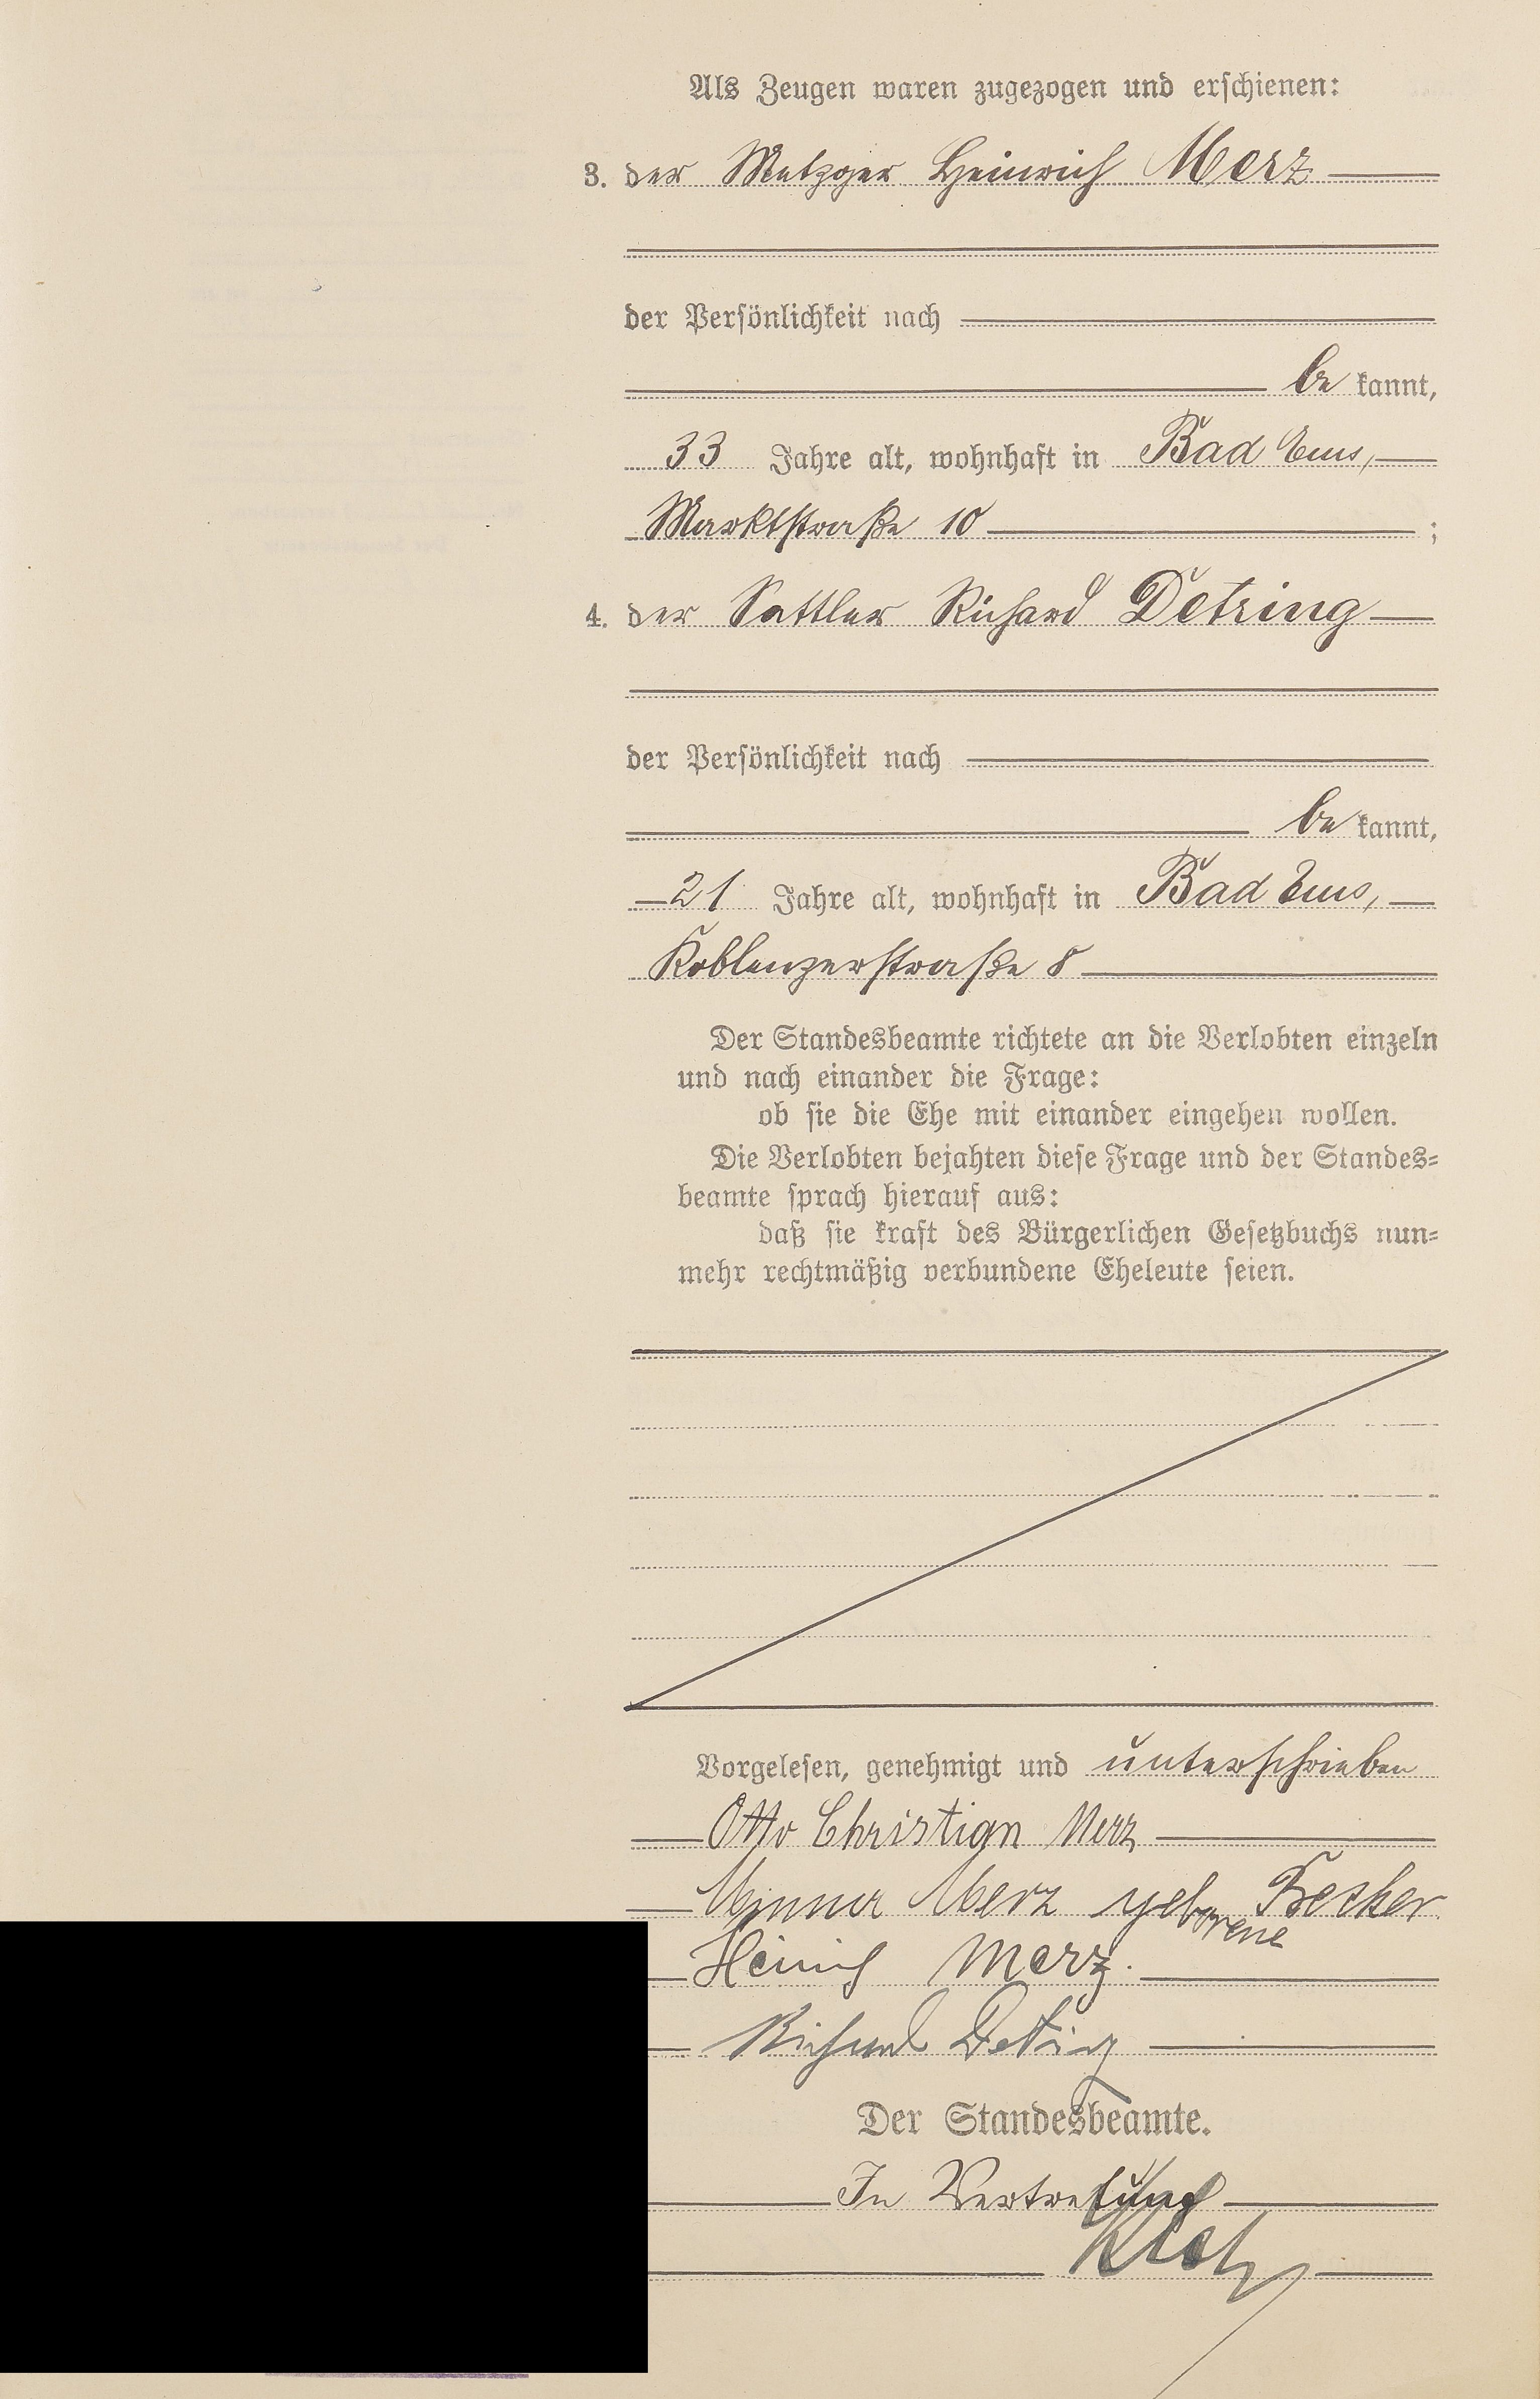 Als Zeugen waren zugezogen und erschienen:
3. der Metzger Heinrich Merz
der Persönlichkeit nach
be kannt,
33 Jahre alt, wohnhaft in Bad Ems,
Marktstraße 10 ;
4. der Sattler Richard Detring
der Persönlichkeit nach
be kannt,
21 Jahre alt, wohnhaft in Bad Ems,
Koblenzerstraße 8
Der Standesbeamte richtete an die Verlobten einzeln
und nach einander die Frage:
ob sie die Ehe mit einander eingehen wollen.
Die Verlobten bejahten diese Frage und der Standes=
beamte sprach hierauf aus:
daß sie kraft des Bürgerlichen Gesetzbuchs nun=
mehr rechtmäßig verbundene Eheleute seien.
Vorgelesen, genehmigt und unterschrieben
Otto Christian Merz
Minna Merz geborene Becker
Heinrich Merz.
Richard Detring
Der Standesbeamte.
In Vertretung